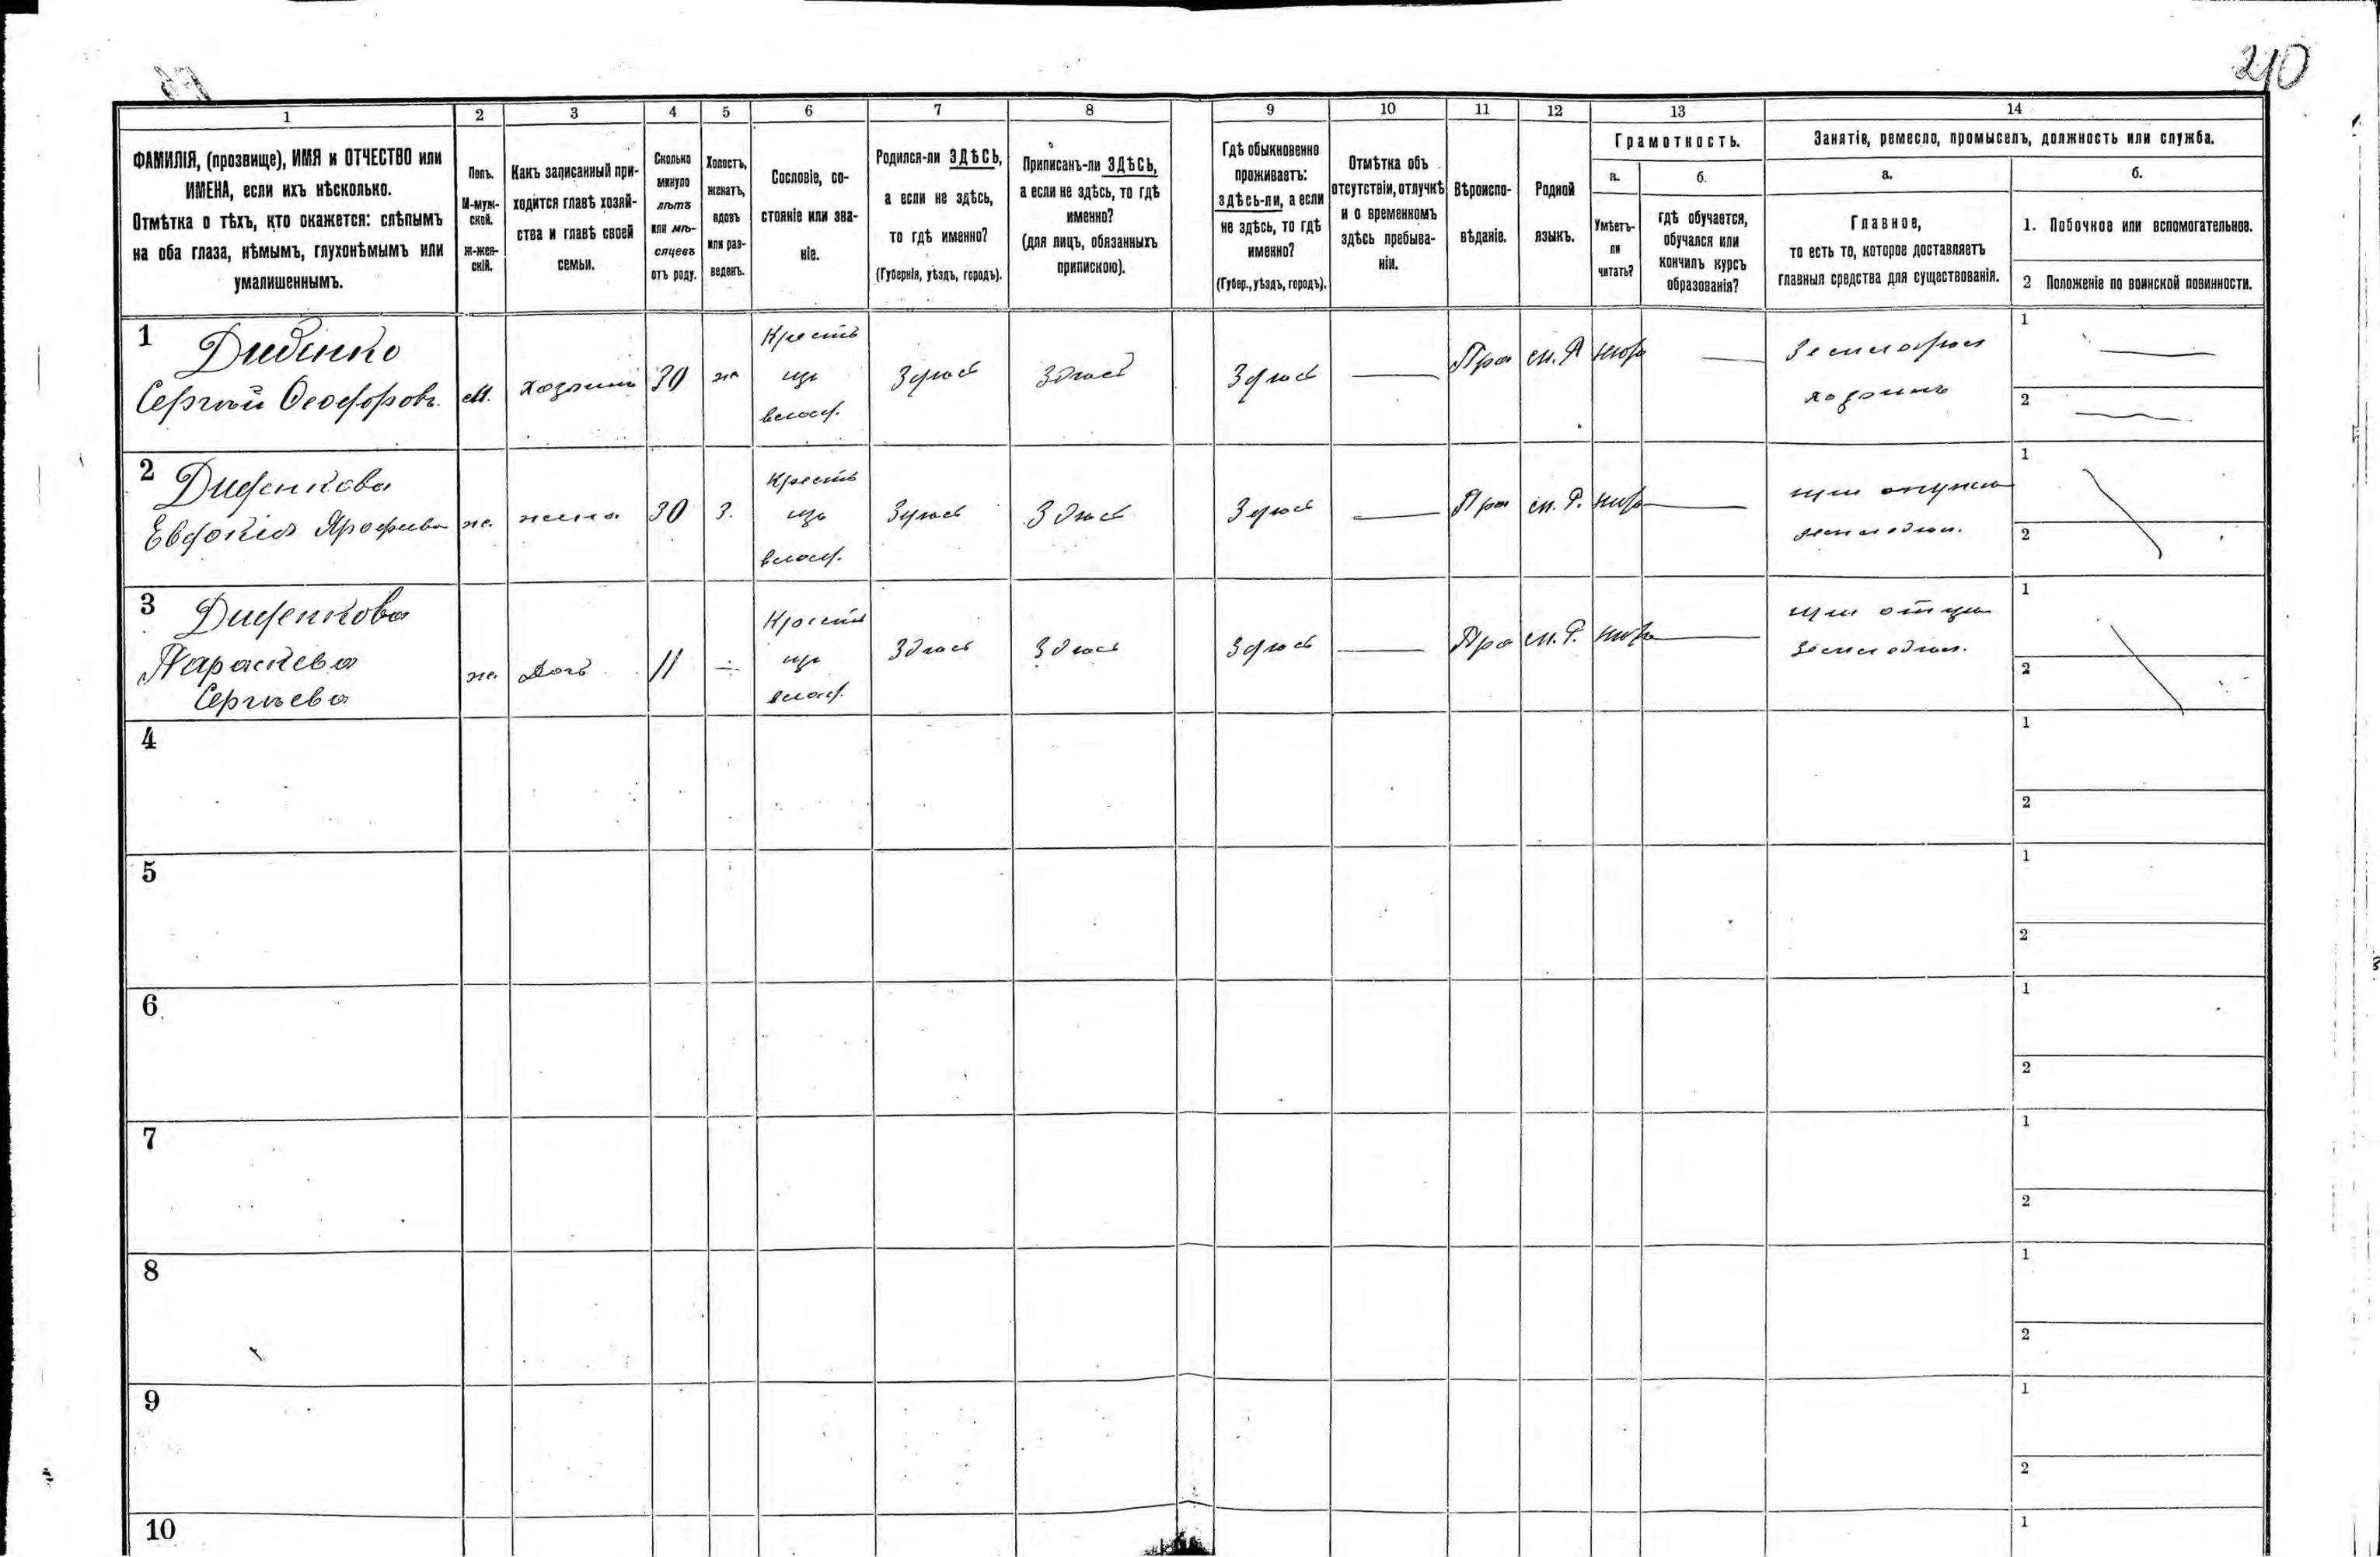 210
1
2
3
4
5
6
7
8
9
10
11
12
13
14
ФАМИЛІЯ, (прозвище), ИМЯ и ОТЧЕСТВО или
ИМЕНА, если ихъ нѣсколько.
Отмѣтка о тѣхъ, кто окажется: слѣпымъ
на оба глаза, нѣмымъ, глухонѣмымъ или
умалишеннымъ.
Полъ.
М-муж-
ской.
ж-жен-
скій.
Какъ записанный при-
ходится главѣ хозяй-
ства и главѣ своей
семьи.
Сколько
минуло
лѣтъ
или мѣ-
сяцевъ
отъ роду.
Холостъ,
женатъ,
вдовъ
или раз-
веденъ.
Сословіе, со-
стояніе или зва-
ніе.
Родился-ли ЗДѢСЬ,
а если не здѣсь,
то гдѣ именно?
(Губернія, уѣздъ, городъ).
Приписанъ-ли ЗДѢСЬ,
а если не здѣсь, то гдѣ
именно?
(для лицъ, обязанныхъ
припискою).
Гдѣ обыкновенно
проживаетъ:
здѣсь-ли, а если
не здѣсь, то гдѣ
именно?
(Губер., уѣздъ, городъ).
Отмѣтка объ
отсутствіи, отлучкѣ
и о временномъ
здѣсь пребыва-
ніи.
Вѣроиспо-
вѣданіе.
Родной
языкъ.
Грамотность.
а.
Умѣетъ-
ли
читать?
б.
гдѣ обучается,
обучался или
кончилъ курсъ
образованія?
Занятія, ремесло, промыселъ, должность или служба.
а.
Главное,
то есть то, которое доставляетъ
главныя средства для существованія.
б.
1. Побочное или вспомогательное.
2 Положеніе по воинской повинности.
1
Диденко
Сергѣй Ѳеодоровъ
м. хозяинъ 30 ж
Крестъ
изъ
владѣ.
Здѣсь Здѣсь Здѣсь — Пра м. Р
—
хозяинъ
1 —
2 —
2
Диденкова
Евдокія
ж. жена 30 З.
Крестъ
изъ
владѣ.
Здѣсь Здѣсь Здѣсь — Пра м. Р.
—
при
1
2
3
Диденкова
Параскева
Сергѣева
ж. дочь 11 —
Крестъ
изъ
владѣ.
Здѣсь Здѣсь Здѣсь — Пра м. Р.
—
при отцѣ
1
2
4
1
2
5
1
2
6
1
2
7
1
2
8
1
2
9
1
2
10
1